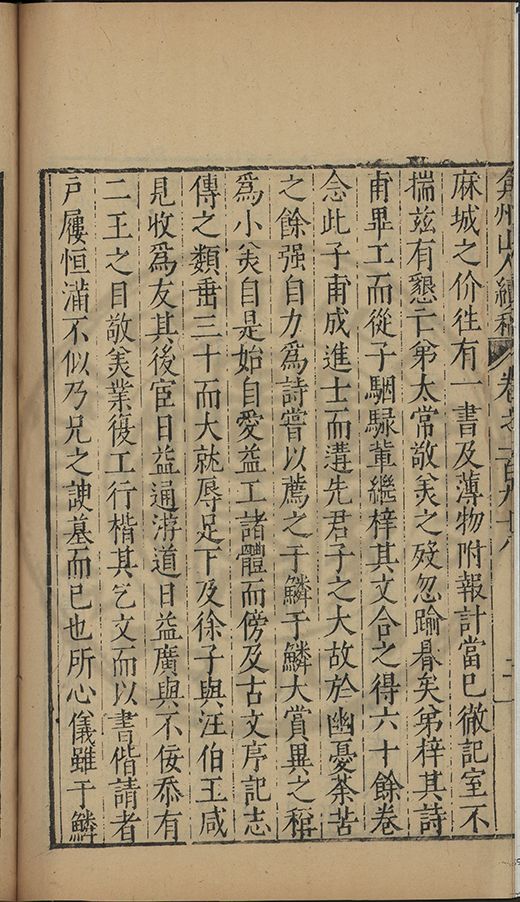 弇州山人續稿 卷之一百九十八 十一
麻城之价徃有一書及薄物附報計當已徹記室不
揣兹有懇亡弟太常敬美之歿忽踰朞矣弟梓其詩
甫畢工而從子駰騄輩繼梓其文合之得六十餘卷
念此子甫成進士而溝先君子之大故於幽憂荼苦
之餘强自力爲詩嘗以薦之于鱗于鱗大賞異之稱
爲小美自是始自愛益工諸體而傍及古文序記志
傳之類垂三十而大就辱足下及徐子與汪伯玉咸
見收爲友其後宦日益通游道日益廣與不佞忝有
二王之目敬美業復工行楷其乞文而以書偕請者
戸屨恒滿不似乃兄之諛墓而已也所心儀雖于鱗